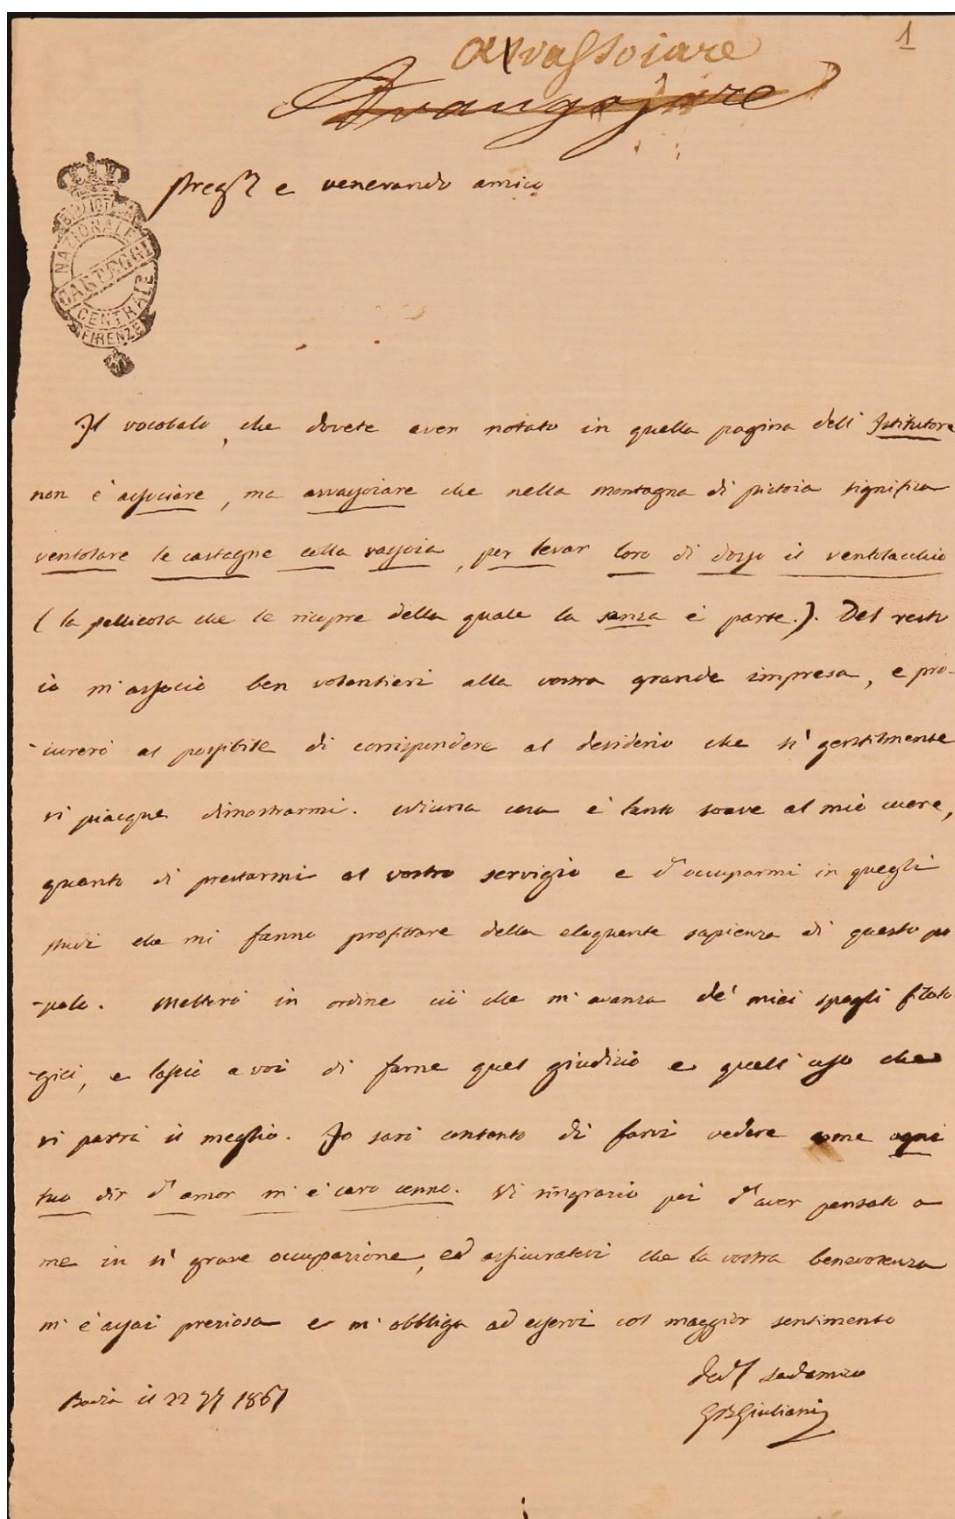 1
avvassoiare
Preg.mo e venerando amico
BIBLIOTECA
NAZIONALE
CARTEGGI
CENTRALE
FIRENZE
Il vocabolo, che dovete aver notato in quella pagina dell'Istitutore
non è associare, ma avvassoiare che nella montagna di pistoia significa
ventolare le castagne colla vassoia, per levar loro di dosso il ventolacchio
(la pellicola che le ricopre della quale la sansa è parte.). Del resto
io m'associo ben volontieri alla vostra grande impresa, e pro-
-curerò al possibile di corrispondere al desiderio che sì gentilmente
vi piacque dimostrarmi. Niuna cosa è tanto soave al mio cuore,
quanto di prestarmi al vostro servigio e d'occuparmi in quegli
studi che mi fanno profittare della eloquente sapienza di questo po
-polo. Metterò in ordine ciò che m'avanza de' miei spogli filolo
-gici, e lascio a voi di farne quel giudizio e quell'uso che
vi parrà il meglio. Io sarò contento di farvi vedere come ogni
tuo dir d'amor m'è caro cenno. Vi ringrazio poi d'aver pensato a
me in sì grave occupazione, ed assicuratevi che la vostra benevolenza
m'è assai preziosa e m'obbliga ad esservi col maggior sentimento
amico
GBGiuliani
il 22 1861